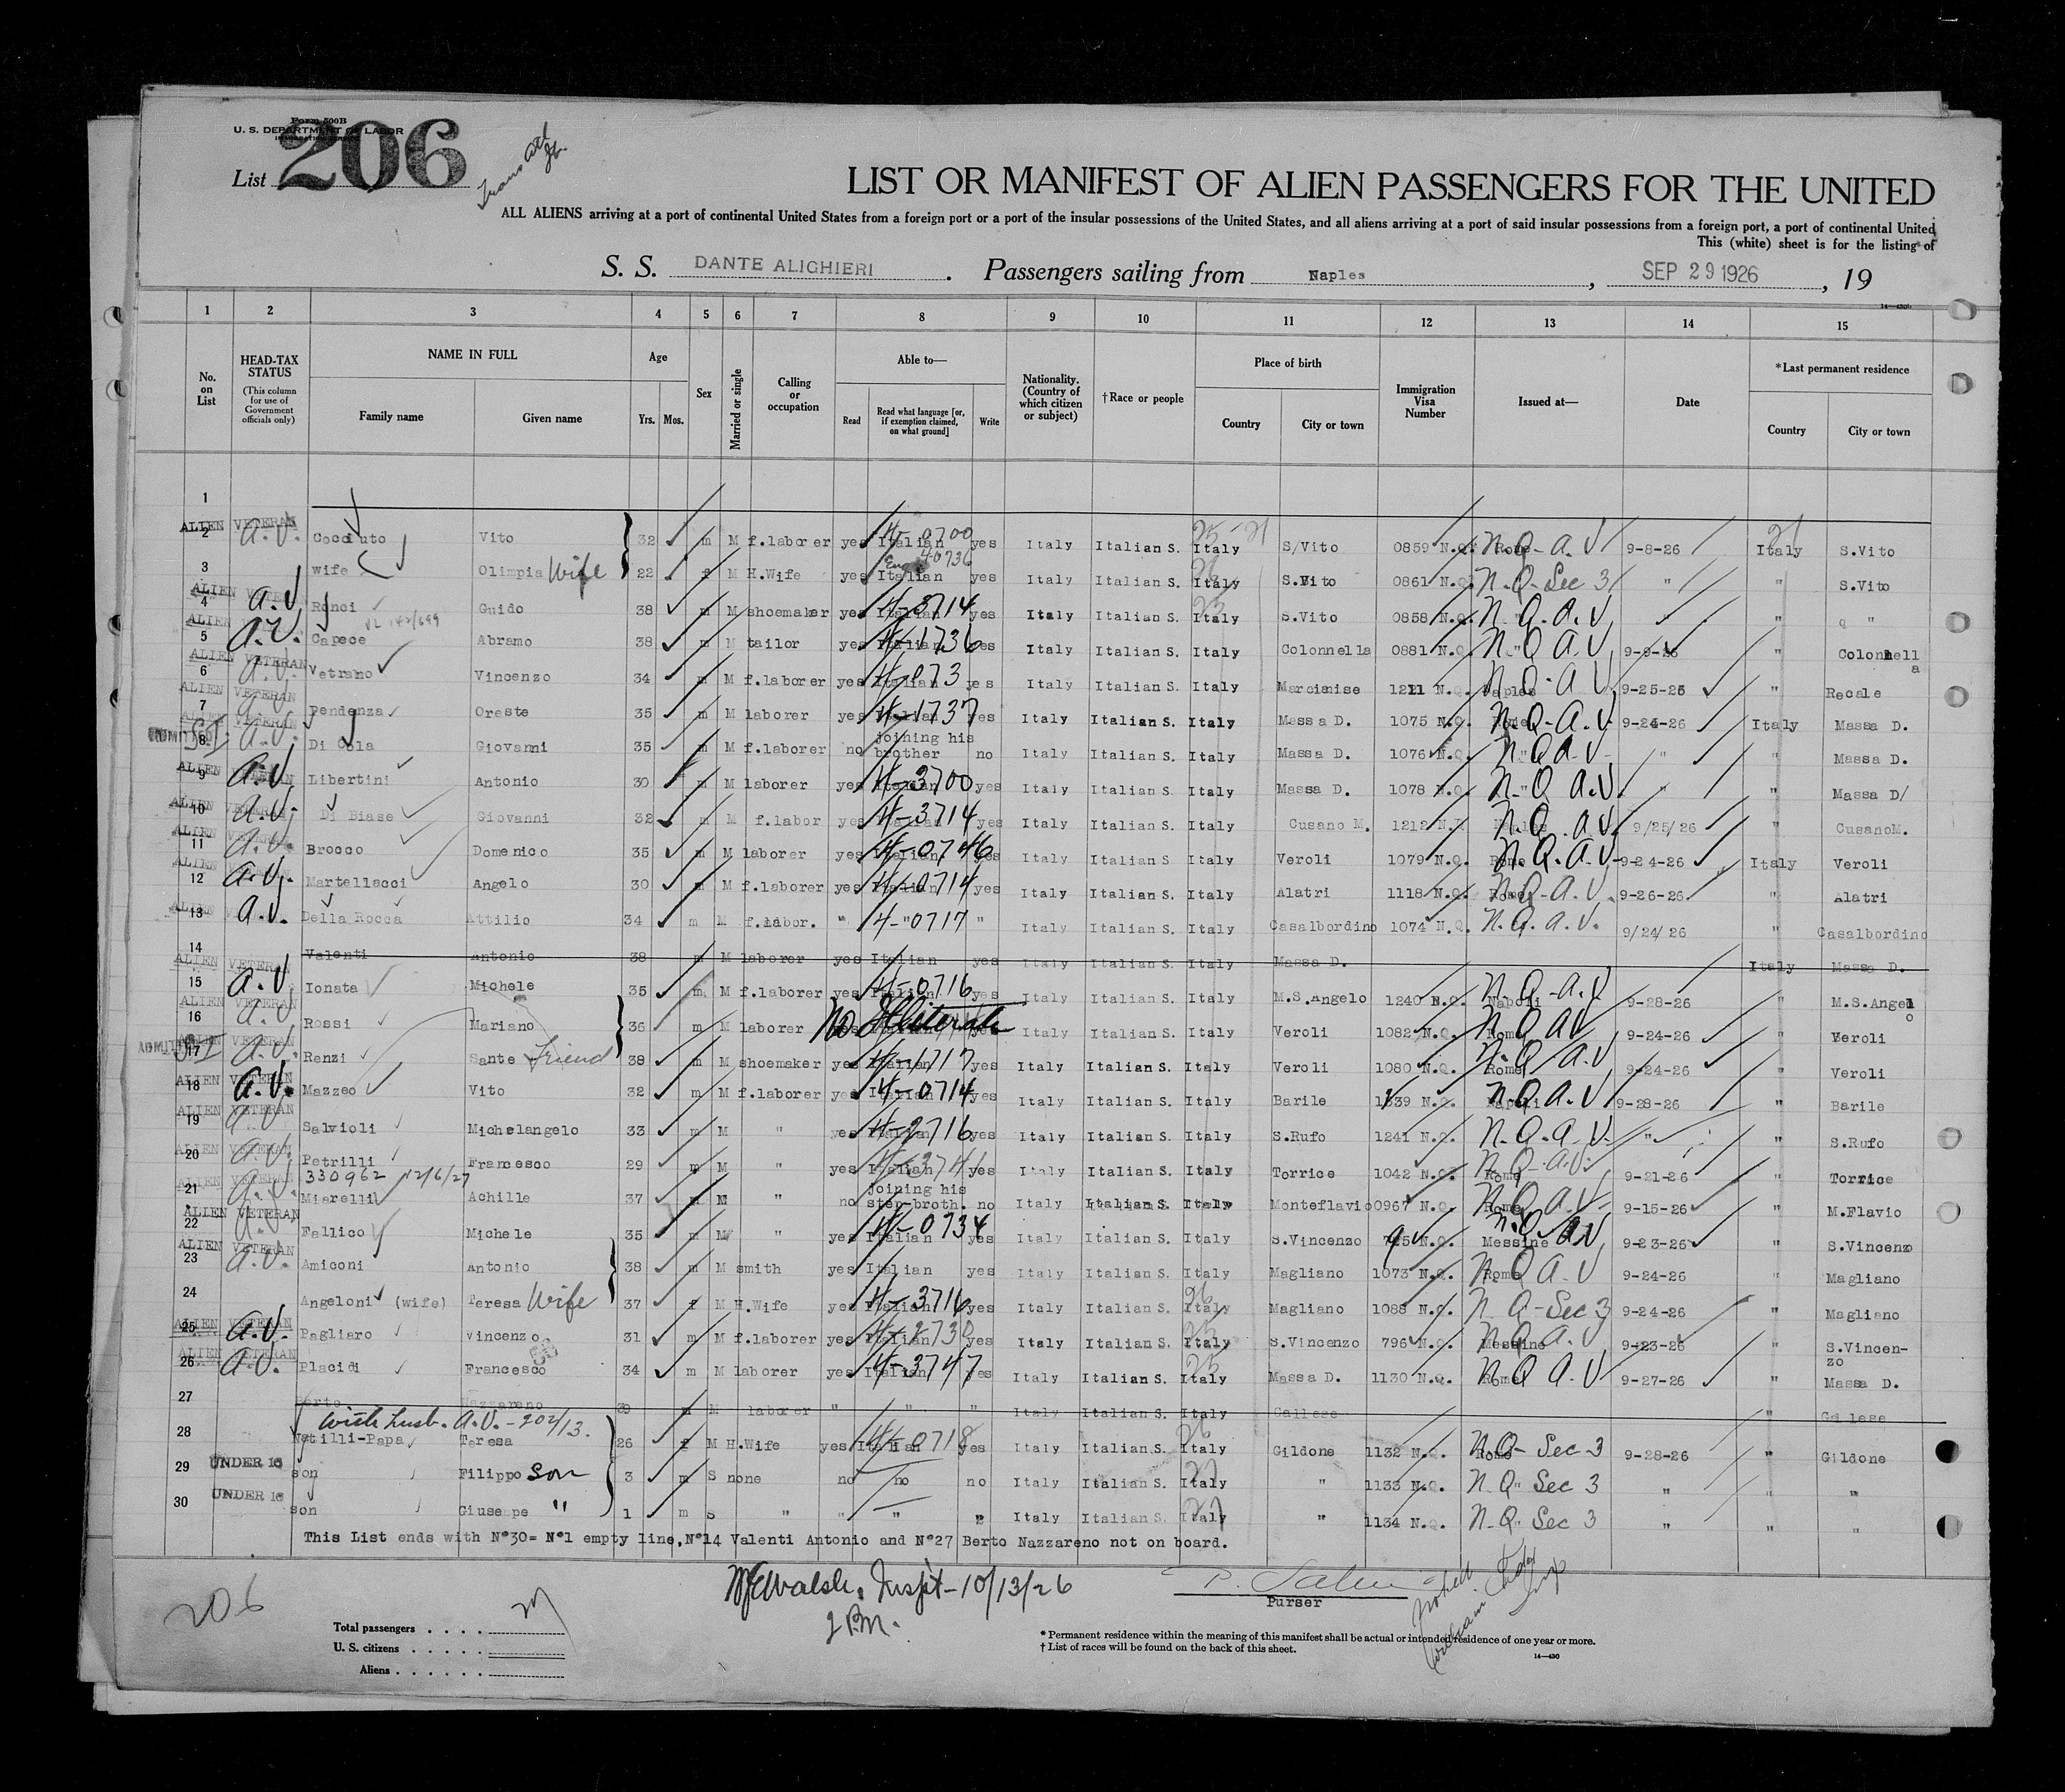 Form 500B
U. S. DEPARTMENT OF LABOR
List 206
LIST OR MANIFEST OF ALIEN PASSENGERS FOR THE UNITED
ALL ALIENS arriving at a port of continental United States from a foreign port or a port of the insular possessions of the United States, and all aliens arriving at a port of said insular possessions from a foreign port, a port of continental United
This (white) sheet is for the listing of
S. S. DANTE ALIGHIERI. Passengers sailing from Naples, SEP 29 1926, 19
1 2 3 4 5 6 7 8 9 10 11 12 13 14 15
No. on List HEAD-TAX STATUS (This column for use of Government officials only) NAME IN FULL Family name Given name Age Yrs. Mos. Sex Married or single Calling or occupation Able to— Read Read what language [or, if exemption claimed, on what ground] Write Nationality. (Country of which citizen or subject) †Race or people Place of birth Country City or town Immigration Visa Number Issued at— Date *Last permanent residence Country City or town
1
2 ALIEN VETERAN A.V. Vito 32 m M f.laborer yes 4-0700 Italian yes Italy Italian S. Italy S/Vito 0859 N.Q. Rome N.Q-A.V 9-8-26 Italy S.Vito
3 wife Olimpia Wife 22 f M H.Wife yes Italian yes Italy Italian S. Italy S.Vito 0861 N.Q. N.Q-Sec 3 " " S.Vito
4 ALIEN VETERAN A.V Ronci Guido 38 m M shoemaker yes 4-3714 Italian yes Italy Italian S. Italy S.Vito 0858 N.Q. N.Q.A.V " "
5 ALIEN A.V. Capece Abramo 38 m M tailor yes 4-1736 Italian yes Italy Italian S. Italy Colonnella 0881 N.Q. N.Q A.V 9-9-26 " Colonnella
6 ALIEN VETERAN A.V. Vetrano Vincenzo 34 m M f.laborer yes Italian yes Italy Italian S. Italy Marcianise 1211 N.Q. Naples N.Q-A.V 9-25-26 " Recale
7 ALIEN VETERAN Pendenza Oreste 35 m M laborer yes 4-1737 Italian yes Italy Italian S. Italy Massa D. 1075 N.Q. Rome N.Q-A.V 9-24-26 Italy Massa D.
8 ADMITTED ALIEN VETERAN A.V. Di Cola Giovanni 35 m M f.laborer no joining his brother no Italy Italian S. Italy Massa D. 1076 N.Q. " N.Q A.V " " Massa D.
9 ALIEN VETERAN A.V Libertini Antonio 30 m M laborer yes 4-3700 Italian yes Italy Italian S. Italy Massa D. 1078 N.Q. " N.Q A.V. " " Massa D/
10 ALIEN VETERAN A.V. Di Biase Giovanni 32 m M f.labor yes 4-3714 yes Italy Italian S. Italy Cusano M. 1212 N.Q. N.Q. A.V. 9/25/26 " CusanoM.
11 ALIEN VETERAN A.V. Brocco Domenico 35 m M laborer yes 4-0746 Italian yes Italy Italian S. Italy Veroli 1079 N.Q. Rome N.Q.A.V 9-24-26 Italy Veroli
12 ALIEN VETERAN A.V. Martellacci Angelo 30 m M f.laborer yes 4-0714 Italian yes Italy Italian S. Italy Alatri 1118 N.Q. Rome N.Q-A.V. 9-26-26 " Alatri
13 ALIEN A.V. Della Rocca Attilio 34 m M f.labor. " 4-0717 " " Italy Italian S. Italy Casalbordino 1074 N.Q. N.Q.A.V. 9/24/26 " Casalbordino
14 Valenti Antonio 38 m M laborer yes Italian yes Italy Italian S. Italy Massa D. Italy Massa D.
15 ALIEN VETERAN A.V Ionata Michele 35 m M f.laborer yes 4-0716 Italian yes Italy Italian S. Italy M.S.Angelo 1240 N.Q. Napoli N.Q-A.V 9-28-26 " M.S.Angelo
16 ALIEN VETERAN A.V Rossi Mariano 36 m M laborer No Illiterate Italy Italian S. Italy Veroli 1082 N.Q. Rome N.Q AV 9-24-26 " Veroli
17 ADMITTED ALIEN VETERAN A.V. Renzi Sante Friend 38 m M shoemaker yes 4-1717 Italian yes Italy Italian S. Italy Veroli 1080 N.Q. Rome N.Q A.V 9-24-26 " Veroli
18 ALIEN VETERAN A.V. Mazzeo Vito 32 m M f.laborer yes 4-0714 Italian yes Italy Italian S. Italy Barile 1339 N.Q. Napoli N.Q A.V 9-28-26 " Barile
19 ALIEN VETERAN A.V Salvioli Michelangelo 33 m M " yes 4-2716 yes Italy Italian S. Italy S.Rufo 1241 N.Q. N.Q.A.V. " " S.Rufo
20 ALIEN VETERAN A.V. Petrilli Francesco 29 m M " yes Italian yes Italy Italian S. Italy Torrice 1042 N.Q. Rome N.Q-A.V. 9-21-26 " Torrice
330962 12/6/27
21 ALIEN VETERAN A.V. Miarelli Achille 37 m M " no joining his step-broth. no Italy Italian S. Italy Monteflavio 0967 N.Q. Rome N.Q A.V- 9-15-26 " M.Flavio
22 ALIEN VETERAN A.V. Fallico Michele 35 m M " yes 4-0734 Italian yes Italy Italian S. Italy S.Vincenzo N.Q. Messine N.Q A.V 9-23-26 " S.Vincenzo
23 ALIEN VETERAN A.V. Amiconi Antonio 38 m M smith yes Italian yes Italy Italian S. Italy Magliano 1073 N.Q. Rome N.Q A.V 9-24-26 " Magliano
24 Angeloni (wife) Teresa Wife 37 f M H.Wife yes 4-3716 Italian yes Italy Italian S. Italy Magliano 1088 N.Q. N.Q-Sec 3 9-24-26 " Magliano
25 ALIEN VETERAN A.V. Pagliaro Vincenzo 31 m M f.laborer yes Italian yes Italy Italian S. Italy S.Vincenzo 796 N.Q. Messine N.Q A.V 9-23-26 " S.Vincenzo
26 ALIEN VETERAN A.V. Placidi Francesco 34 m M laborer yes 4-3747 Italian yes Italy Italian S. Italy Massa D. 1130 N.Q. Rome N.Q A.V 9-27-26 " Massa D.
27 Berto Nazzareno 39 m M laborer " " " Italy Italian S. Italy Gallese " Gallese
with husb. A.V. - 202/13.
28 Natilli-Papa Teresa 26 f M H.Wife yes 4-0718 Italian yes Italy Italian S. Italy Gildone 1132 N.Q. Rome N.Q- Sec-3 9-28-26 " Gildone
29 UNDER 16 son Filippo Son 3 m S none no no no Italy Italian S. Italy " 1133 N.Q. N.Q " Sec 3 " " "
30 UNDER 16 son Giuseppe " 1 m S " " " " Italy Italian S. Italy " 1134 N.Q. N.Q " Sec 3 " " "
This List ends with N°30= N°1 empty line,N°14 Valenti Antonio and N°27 Berto Nazzareno not on board.
206
Walsh, Inspt-10/13/26
2 P.M.
Purser
Total passengers
U. S. citizens
Aliens
* Permanent residence within the meaning of this manifest shall be actual or intended residence of one year or more.
† List of races will be found on the back of this sheet.
14—430